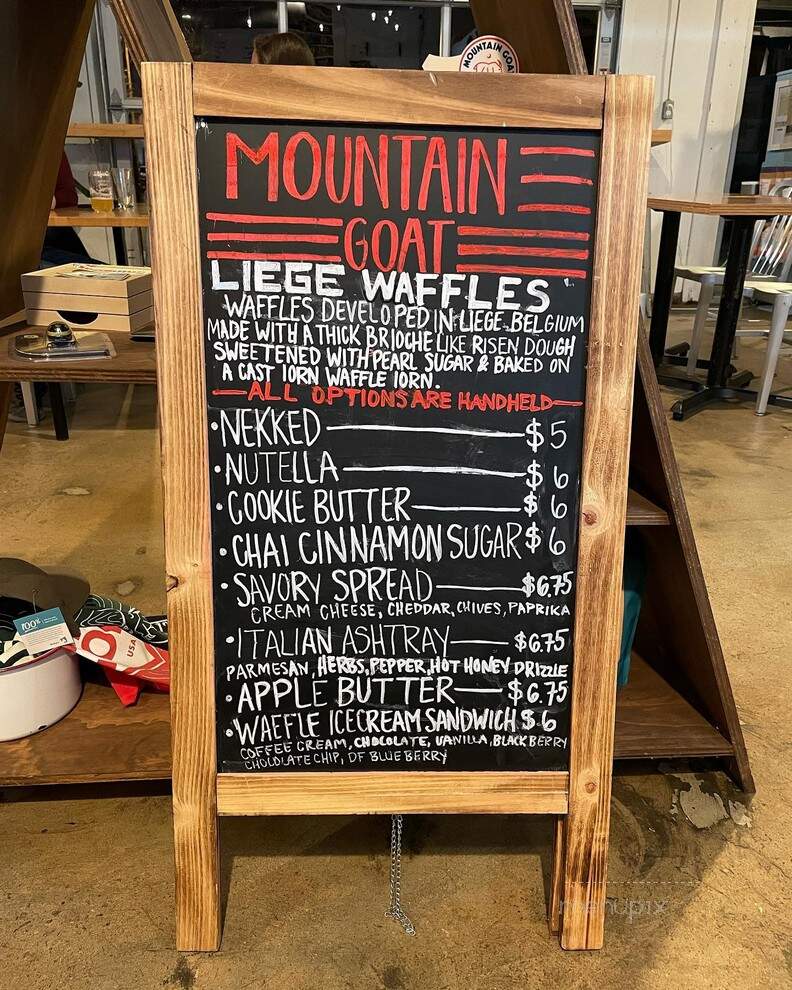 MOUNTAIN GOAT
MOUNTAIN
GOAT
LIEGE WAFFLES
WAFFLES DEVELOPED IN LIEGE, BELGIUM
MADE WITH A THICK BRIOCHE LIKE RISEN DOUGH
SWEETENED WITH PEARL SUGAR & BAKED ON
A CAST IORN WAFFLE IORN.
—ALL OPTIONS ARE HANDHELD—
•NEKKED — $5
•NUTELLA — $6
•COOKIE BUTTER — $6
•CHAI CINNAMON SUGAR $6
•SAVORY SPREAD — $6.75
CREAM CHEESE, CHEDDAR, CHIVES, PAPRIKA
•ITALIAN ASHTRAY — $6.75
PARMESAN, HERBS, PEPPER, HOT HONEY DRIZZLE
•APPLE BUTTER — $6.75
•WAFFLE ICECREAM SANDWICH $6
COFFEE CREAM, CHOCOLATE, VANILLA, BLACKBERRY
CHOCOLATE CHIP, DF BLUEBERRY
100%
USA
menupix